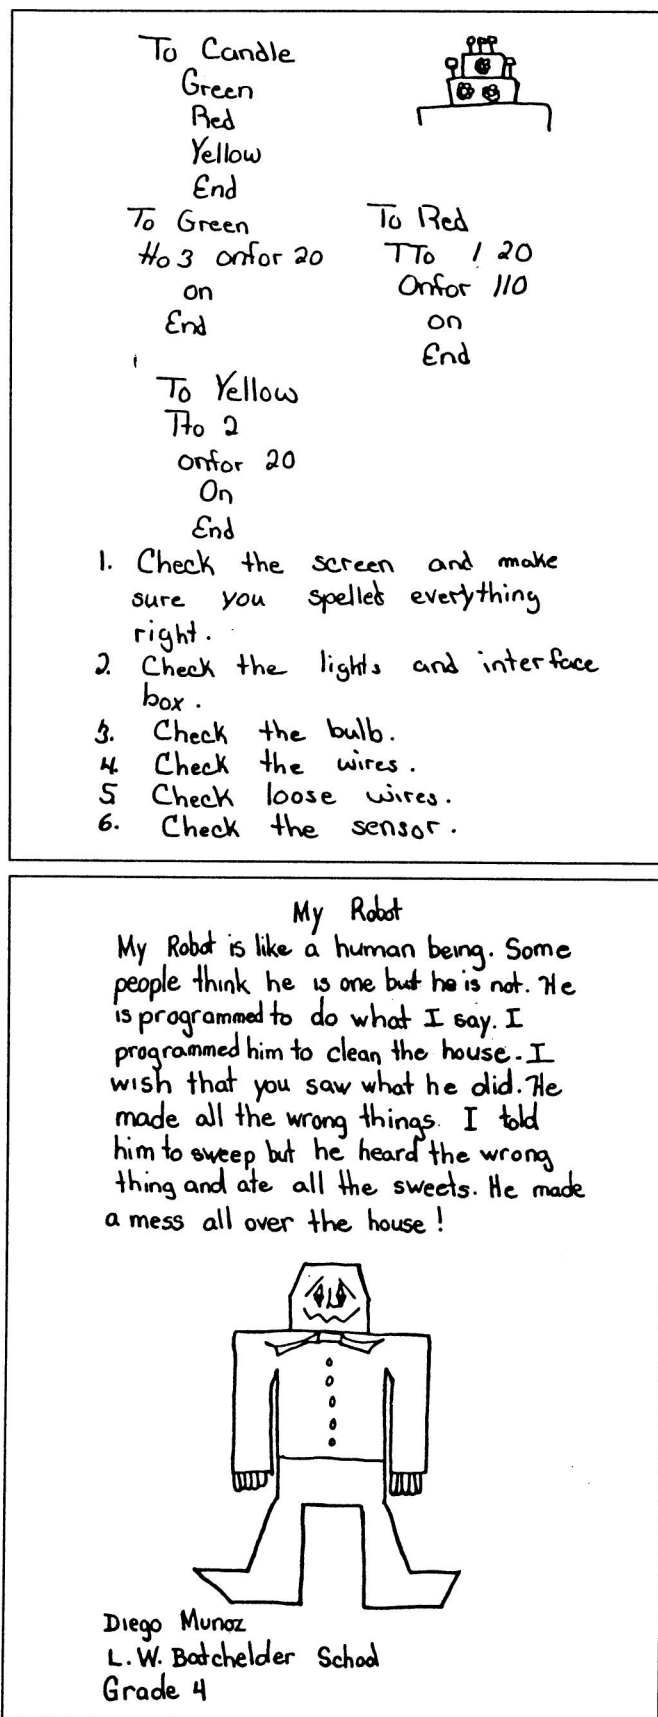 To Candle
Green
Red
Yellow
End
To Green
tto 3 onfor 20
on
End
To Red
TTo 1 20
Onfor 110
on
End
To Yellow
Tto 2
onfor 20
On
End
1. Check the screen and make
sure you spelled everything
right.
2. Check the lights and interface
box.
3. Check the bulb.
4 Check the wires.
5 Check loose wires.
6. Check the sensor.
My Robot
My Robot is like a human being. Some
people think he is one but he is not. He
is programmed to do what I say. I
programmed him to clean the house. I
wish that you saw what he did. He
made all the wrong things. I told
him to sweep but he heard the wrong
thing and ate all the sweets. He made
a mess all over the house!
Diego Munoz
L.W. Batchelder School
Grade 4